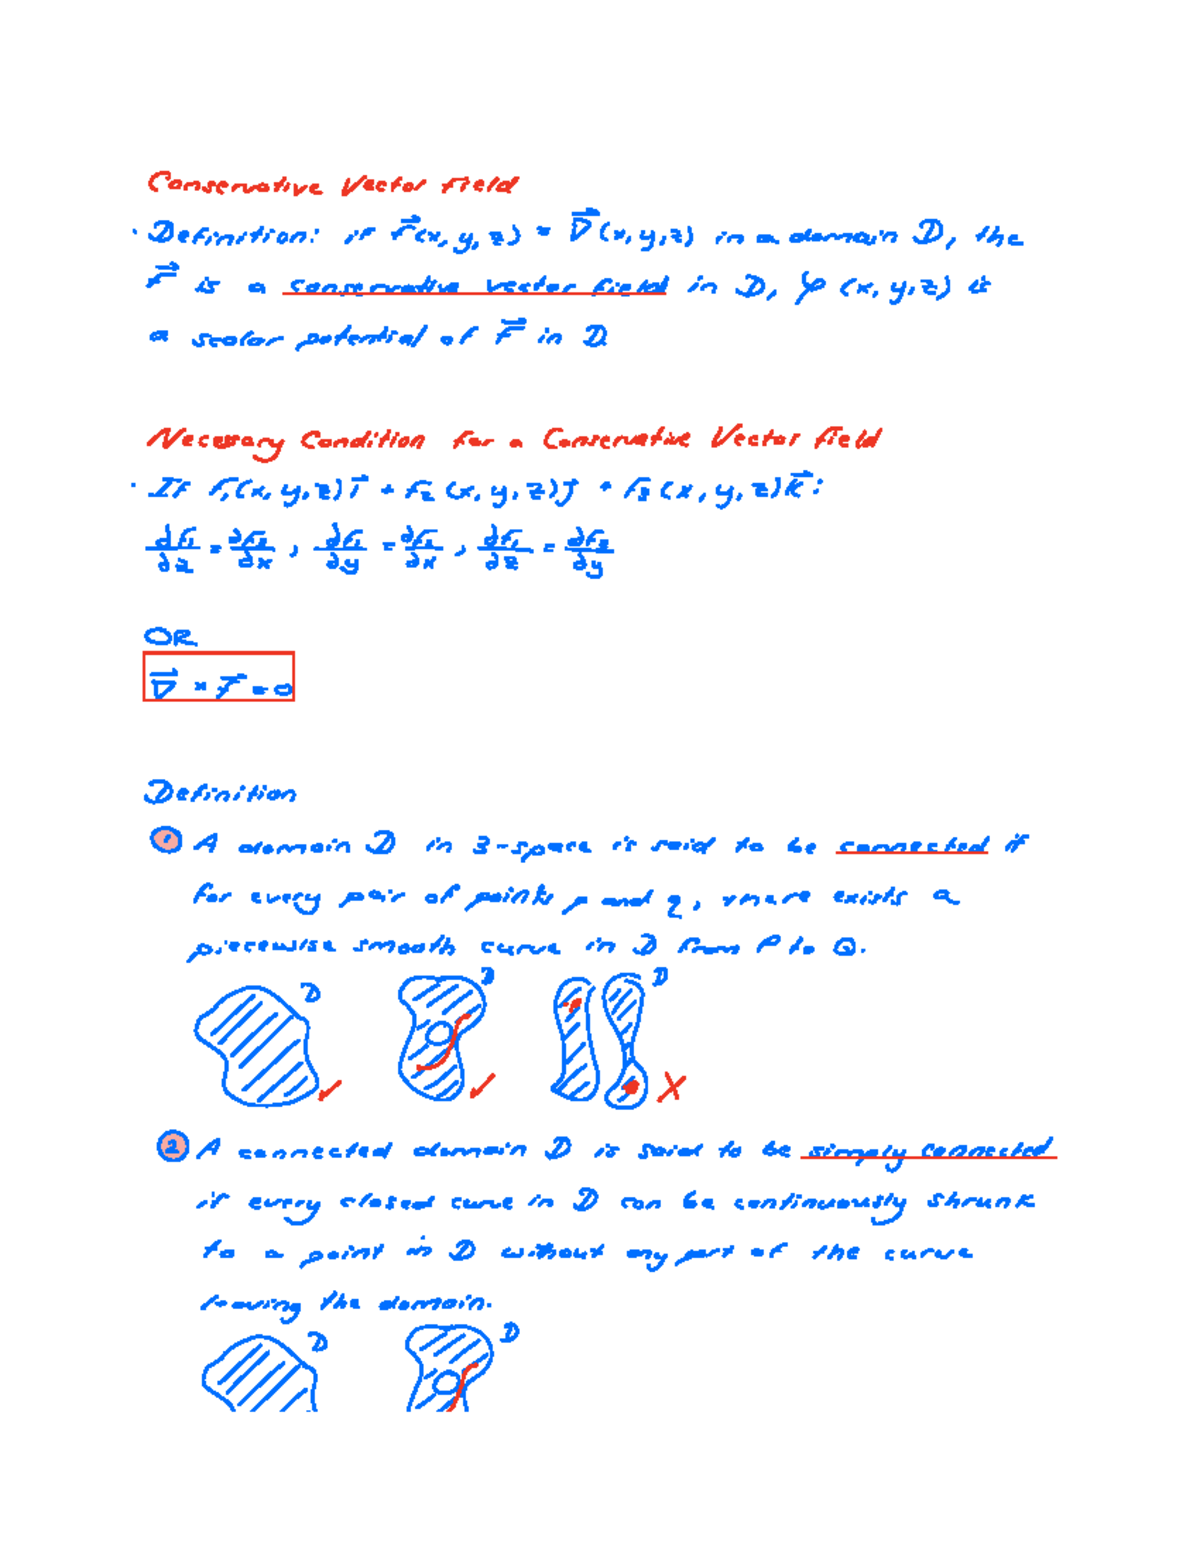 Conservative Vector Field
· Definition: if F⃗(x, y, z) = ∇⃗(x, y, z) in a domain D, the
F⃗ is a conservative vector field in D, φ (x, y, z) is
a scalar potential of F⃗ in D
Necessary Condition for a Conservative Vector Field
· If F₁(x, y, z)i⃗ + F₂ (x, y, z)j⃗ + F₃ (x, y, z)k⃗:
∂F₁/∂z = ∂F₃/∂x , ∂F₁/∂y = ∂F₂/∂x , ∂F₁/∂z = ∂F₃/∂y
OR
∇⃗ × F⃗ = 0
Definition
1 A domain D in 3-space is said to be connected if
for every pair of points p and q, there exists a
piecewise smooth curve in D from P to Q.
D D D
X
2 A connected domain D is said to be simply connected
if every closed curve in D can be continuously shrunk
to a point in D without any part of the curve
leaving the domain.
D D